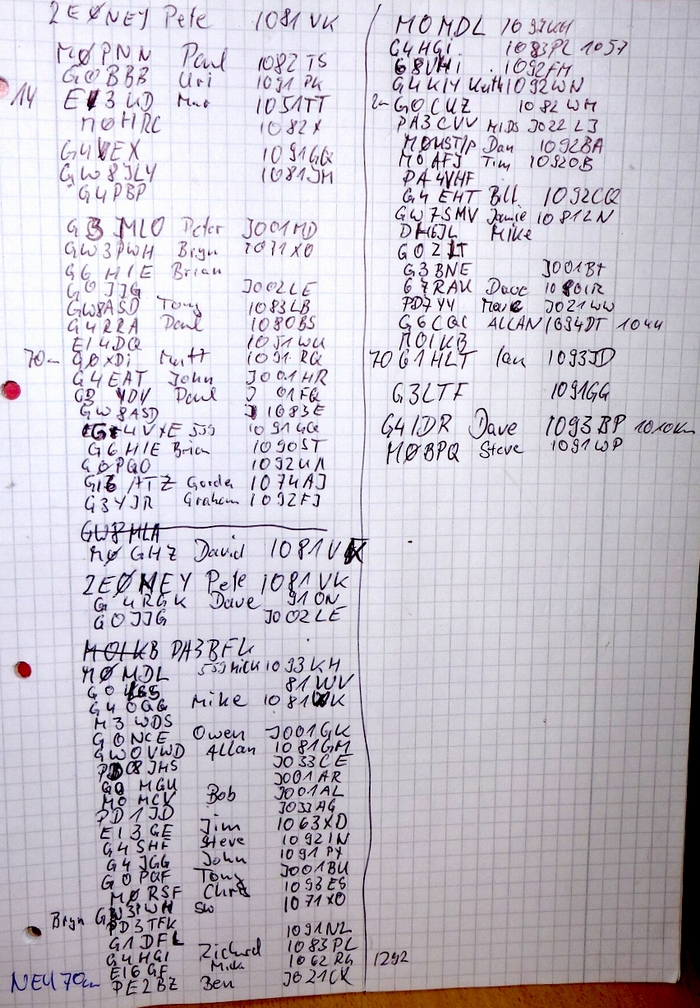 2E0NEY Pete 1081VK
MØPNN Paul 1082TS
G0BBB Uri 1091PK
14 EI3KD Mar 1051TT
M0HRC 1082X
G4VEX 1091GQ
GW8JLY 1081JM
G4PBP
G3MLO Peter JO01MD
GW3PWH Bryn 1071XO
G6HIE Brian
G0JJG JO02LE
GW8ASD Tony 1083LB
G4RRA Paul 1080BS
EI4DQ 1051WU
70cm G0XDI Matt 1091RQ
G4EAT John JO01HR
G3YDY Paul JO01FQ
GW8ASD 1083E
G4VXE 559 1091GQ
G6HIE Brian 1090ST
GØPQO 1092UA
GI6/ATZ Gordon 1074AJ
G3YJR Graham 1092FJ
GW8HLA
MØGHZ David 1081VK
2EØNEY Pete 1081VK
G4RGK Dave 91ON
G0JJG JO02LE
MO1KB PA3BFL
MØMDL 559 Mick 1093KH
81WV
G4OGG Mike 1081WK
M3WDS
G0NCE Owen JO01GK
GW0VWD Allan 1081GM
PD8JHS JO33CE
G0MGU JO01AR
M0MCV Bob JO01AL
PD1JD JO33AG
EI3GE Jim 1063XD
G4SHF Steve 1092IN
G4JGG John 1091PX
G0PQF Tony JO01BU
MØRSF Chris 1093ES
Bryn GW3PWH SW 1071XO
PD3TFK
G1DFL 1091NL
G4HGI Richard 1083PL
EI6GF Mick 1062RG 1292
NEU 70cm PE2BZ Ben JO21CK
M0MDL 1093KH
G4HGI 1083PL 1057
G8VHI 1092FM
G4KIY Keith 1092WN
2m G0CUZ 1082WM
PA3CVV MIDS JO22LJ
MØHST/P Dan 1092BA
M0AFJ Tim 1092OB
PA4VHF
G4EHT Bill 1092CQ
GW7SMV Jamie 1081LN
DH6JL Mike
G0ZIT
G3BNE JO01BT
G7RAU Dave 1080IR
PD7YY Marc JO21WW
G6CQC ALLAN 1094DT 1044
MO1KB
70 G1HLT Ian 1093JD
G3LTF 1091GG
G4IDR Dave 1093BP 1010km
MØBPQ Steve 1091WP